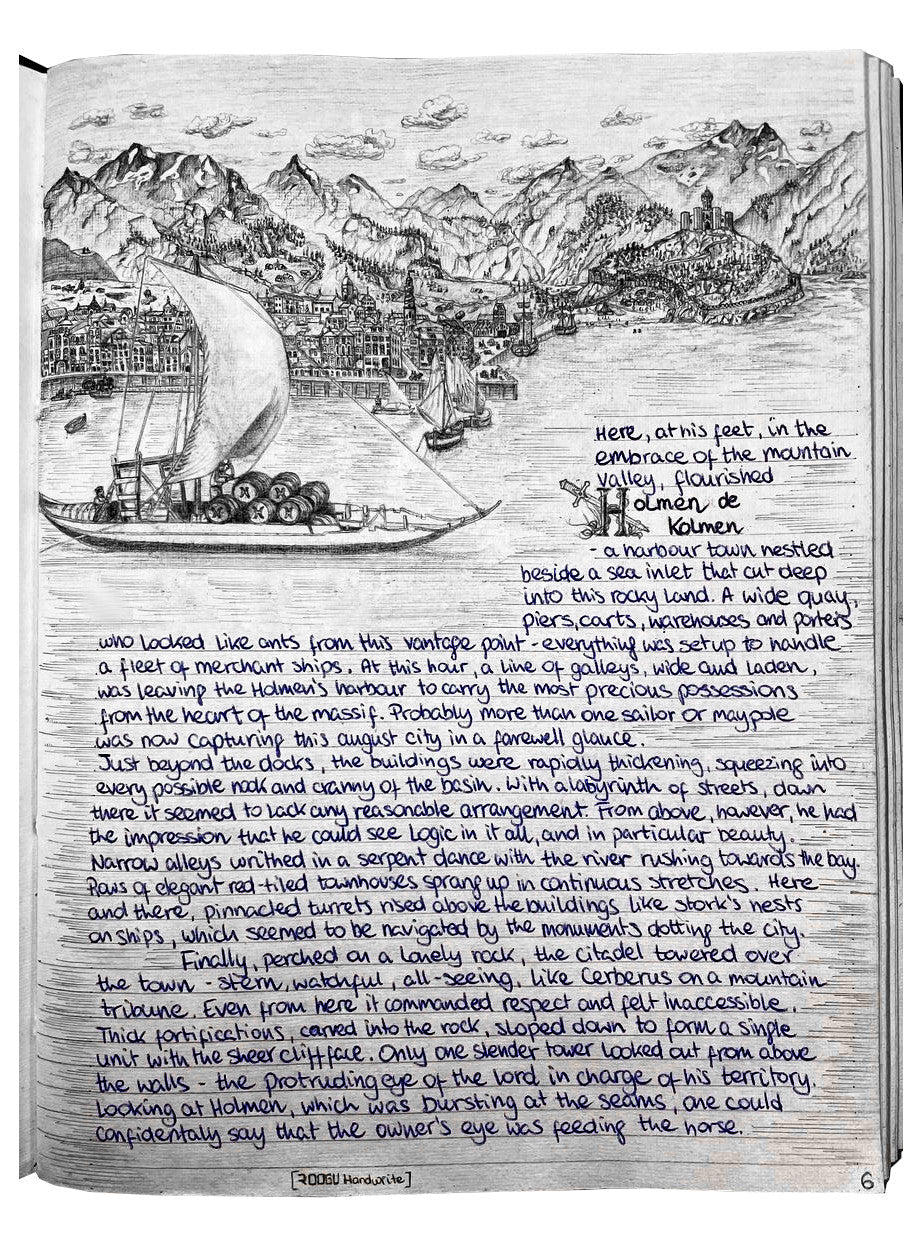 Here, at his feet, in the
embrace of the mountain
valley, flourished
Holmen de
Kolmen
- a harbour town nestled
beside a sea inlet that cut deep
into this rocky land. A wide quay,
piers, carts, warehouses and porters
who looked like ants from this vantage point - everything was set up to handle
a fleet of merchant ships. At this hour, a line of galleys, wide and laden,
was leaving the Holmen's harbour to carry the most precious possessions
from the heart of the massif. Probably more than one sailor or maypole
was now capturing this august city in a farewell glance.
Just beyond the docks, the buildings were rapidly thickening, squeezing into
every possible nook and cranny of the basin. With a labyrinth of streets, down
there it seemed to lack any reasonable arrangement. From above, however, he had
the impression that he could see logic in it all, and in particular beauty.
Narrow alleys writhed in a serpent dance with the river rushing towards the bay.
Rows of elegant red-tiled townhouses sprang up in continuous stretches. Here
and there, pinnacled turrets rised above the buildings like stork's nests
on ships, which seemed to be navigated by the monuments dotting the city.
Finally, perched on a lonely rock, the Citadel towered over
the town - stern, watchful, all-seeing, like Cerberus on a mountain
tribune. Even from here it commanded respect and felt inaccessible.
Thick fortifications, carved into the rock, sloped down to form a single
unit with the sheer cliff face. Only one slender tower looked out from above
the walls - the protruding eye of the lord in charge of his territory.
Looking at Holmen, which was bursting at the seams, one could
confidentaly say that the owner's eye was feeding the horse.
[ROOGU Handwrite]
6